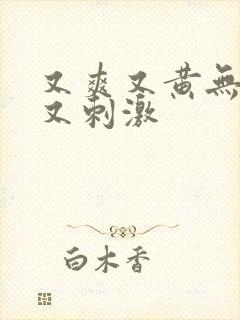 又爽又黄無
又刺激
白木香